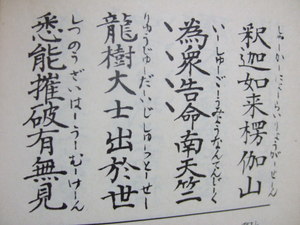 しゃーかーにょーらいりょうがーせん
釈迦如来楞伽山
いーしゅーごうみょうなんてんじーく
為衆告命南天竺
りゅうじゅだいじしゅっとーせー
龍樹大士出於世
しつのうざいはーうーむーけーん
悉能摧破有無見